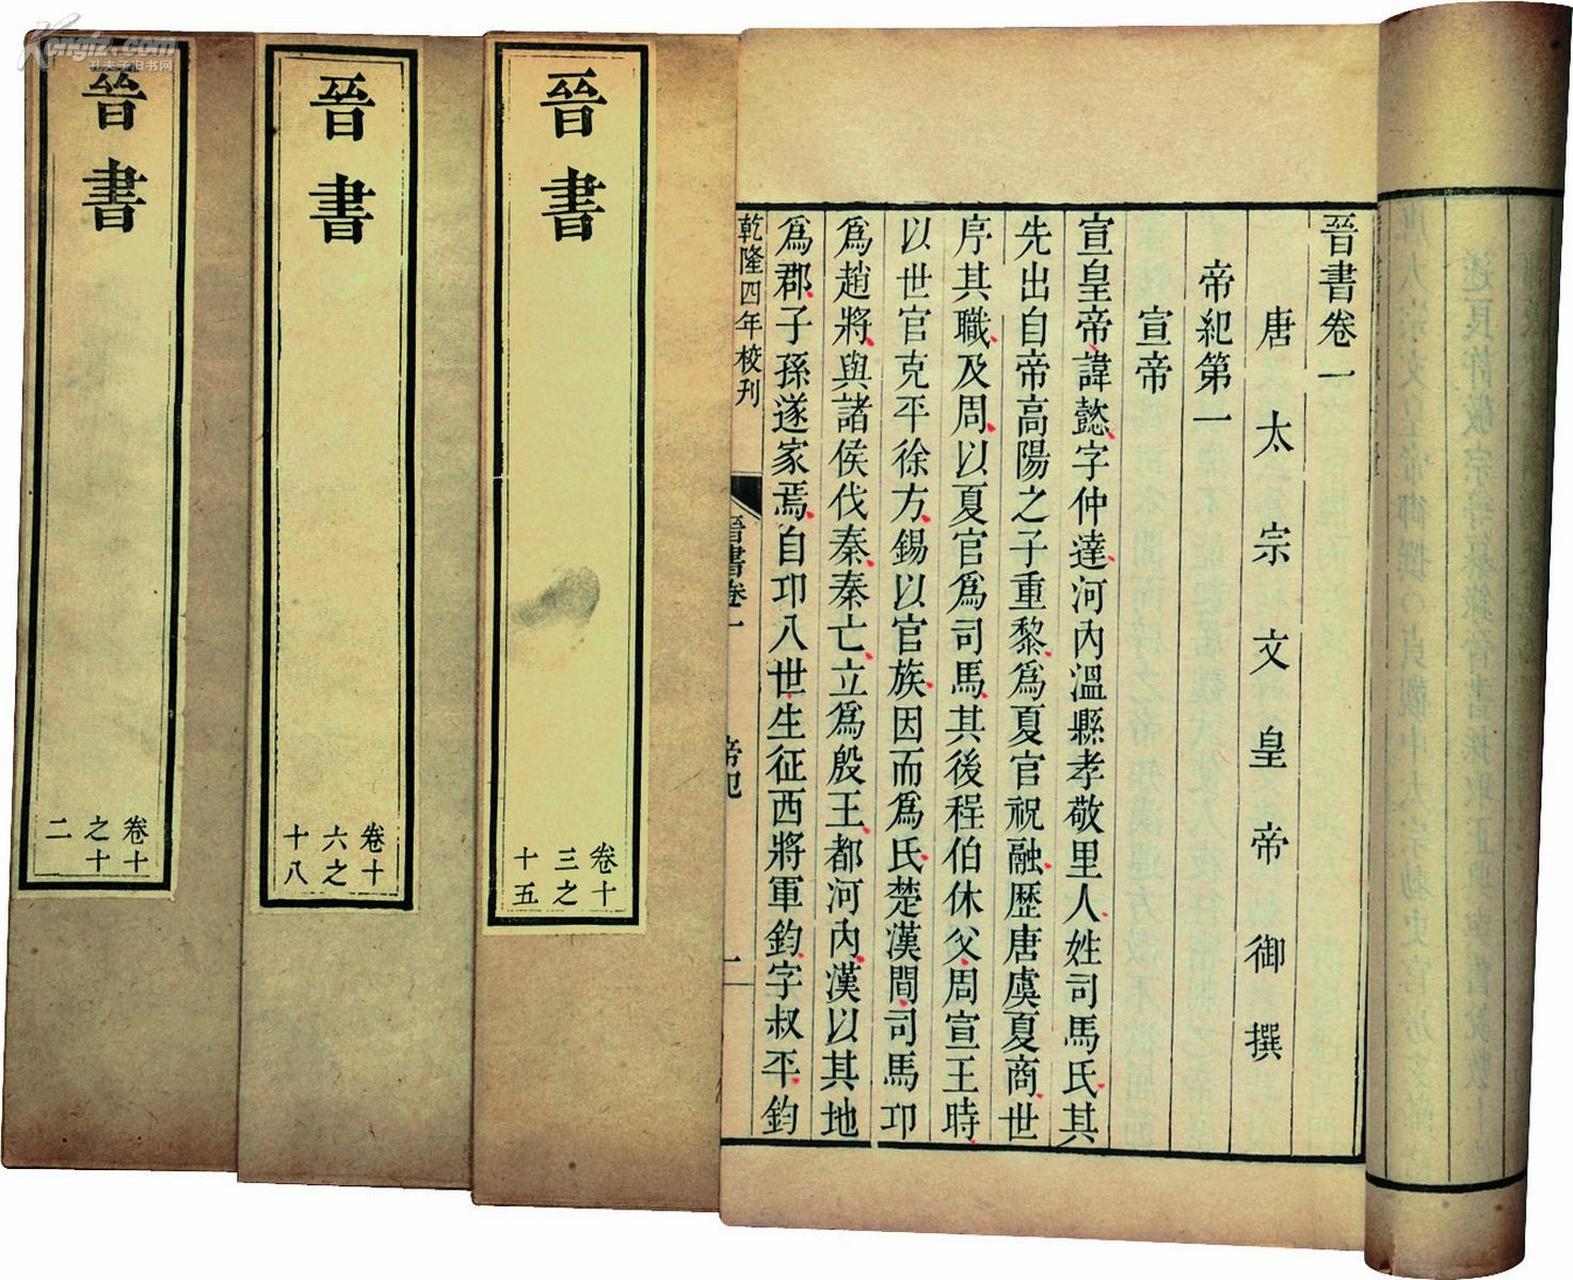 晉書卷一
唐太宗文皇帝御撰
帝紀第一
宣帝
宣皇帝諱懿字仲達河內溫縣孝敬里人姓司馬氏其
先出自帝高陽之子重黎爲夏官祝融歷唐虞夏商世
序其職及周以夏官爲司馬其後程伯休父周宣王時
以世官克平徐方錫以官族因而爲氏楚漢間司馬卬
爲趙將與諸侯伐秦秦亡立爲殷王都河內漢以其地
爲郡子孫遂家焉自卬八世生征西將軍鈞字叔平鈞
乾隆四年校刊
晉書卷一
帝紀
一
晉書
卷十
三之
十五
晉書
卷十
六之
十八
晉書
卷十
之十
二
Kongfz.com
孔夫子旧书网